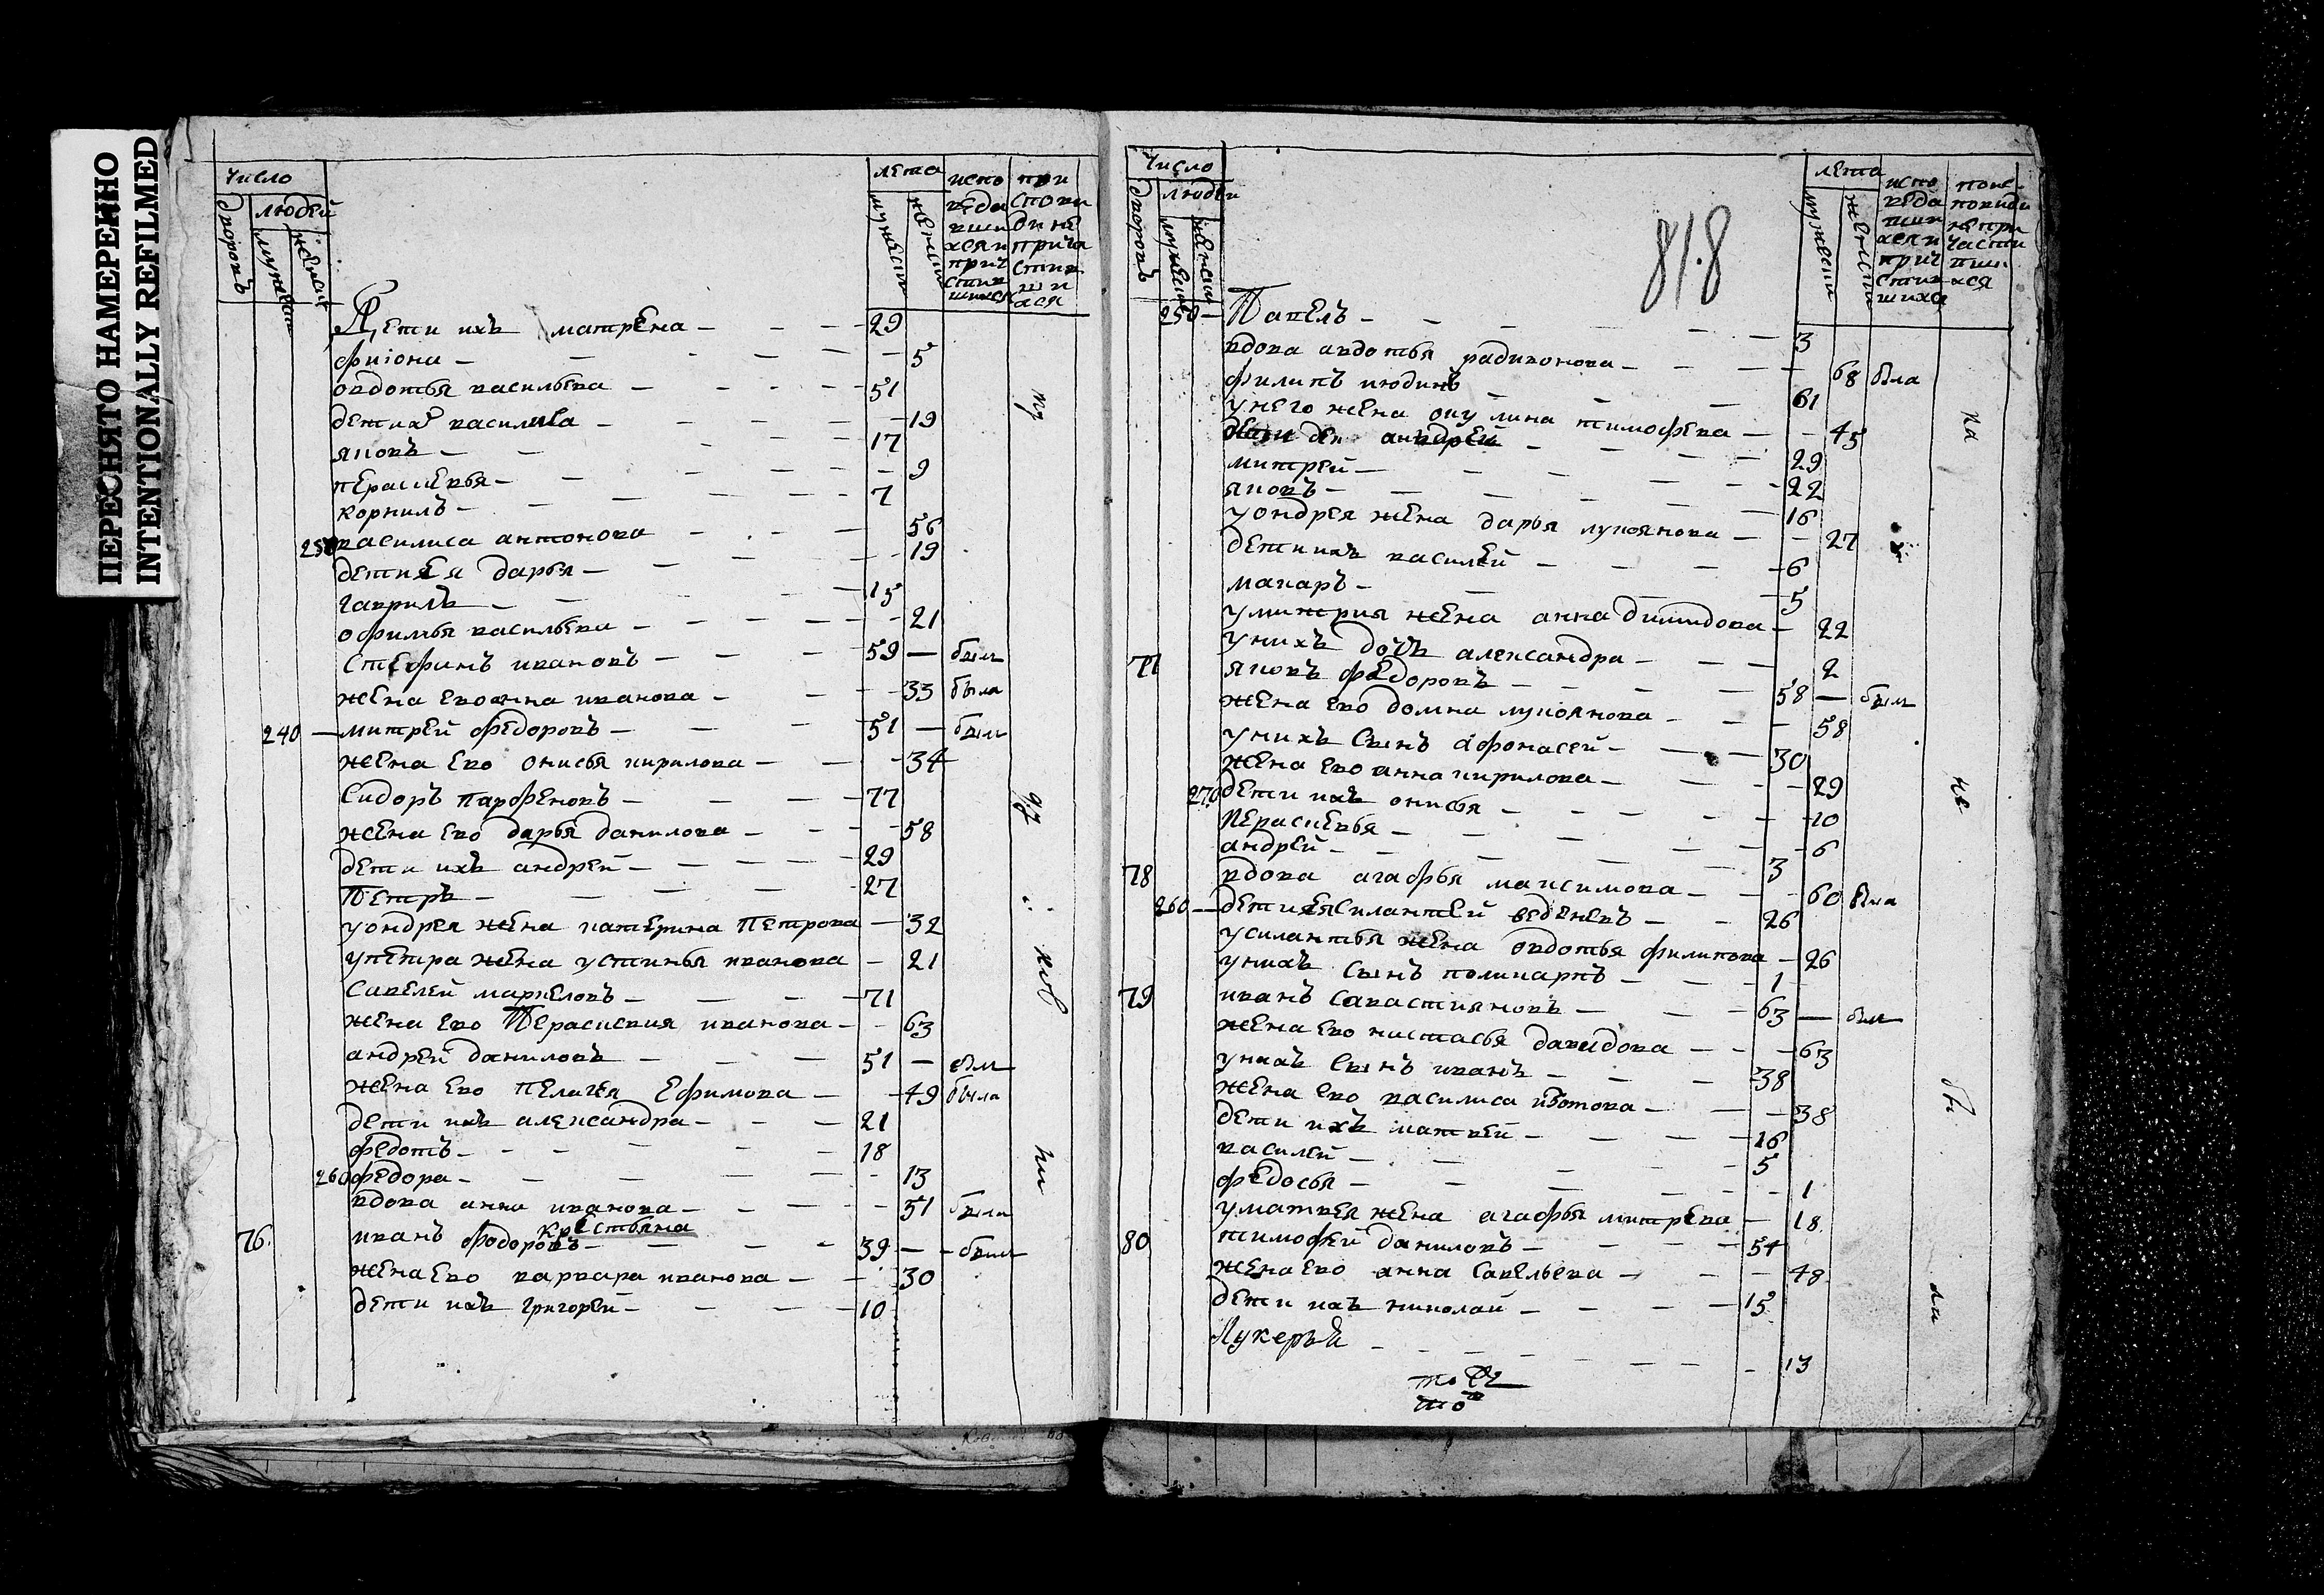 ПЕРЕСНЯТО НАМЕРЕННО
INTENTIONALLY REFILMED
число
людей
дворовъ
мужеск
женск
лета
мужеск
женск
испо
веда
вши
хся и
прич
стив
шихся
при
Дети ихъ матрена — 29
фиіона — 5
овдотья васильева — 51
дети василиса — 19
яковъ — 17
перасиевья — 9
корнилъ — 7
250 василиса антонова — 56
дети ея дарья — 19
гаврилъ — 15
офимья васильева — 21
стефинъ ивановъ — 59 — былъ
жена ево анна иванова — 33 была
240 — митрей федоровъ — 51 — былъ
жена ево онисья кирилова — 34
Сидоръ парфеновъ — 77
жена ево дарья данилова — 58
дети ихъ андрей — 29
Петръ — 27
уондрея жена катерина Петрова — 32
упетра жена устинья иванова — 21
Савелей маркеловъ — 71
жена ево Перасиевия иванова — 63
андрей даниловъ — 51 — былъ
жена ево пелагея Ефимова — 49 была
дети ихъ александра — 21
федотъ — 18
260 федора — 13
вдова анна иванова — 51 была
крестьяна
76. иванъ фодоровъ — 39 — былъ
жена ево варвара иванова — 30
дети ихъ григорей — 10
число
людей
дворовъ
мужеск
женски
лета
мужески
женски
испо
веда
вши
хся и
прич
стив
шихся
818
250 — Павелъ — 3
вдова авдотья радивонова — 68 была
филипъ июдинъ — 61
унего жена окулина тимофева — 45
де андрей — 29
митрей — 22
яковъ — 16
уондрея жена дарья лукоянова — 27
дети ихъ василей — 6
макаръ — 5
умитрия жена анна димидова — 22
унихъ дочь александра — 2
77 яковъ федоровъ — 58 — былъ
жена ево домна лукоянова — 58
унихъ сынъ афонасей — 30
жена ево анна кирилова — 29
270 дети ихъ онисья — 10
перасиевья — 6
андрей — 3
78 вдова агафья максимова — 60 была
260 — дети ея силантей веденевъ — 26
усилантья жена овдотья филипова — 26
унихъ сынъ поликарпъ — 1
79 иванъ савастияновъ — 63 — былъ
жена ево настасья давидова — 63
унихъ сынъ иванъ — 38
жена ево василиса изотова — 38
дети ихъ матвей — 16
василей — 5
федосья — 1
уматвея жена агафья митрева — 18
80 тимофей даниловъ — 54
жена ево анна савельева — 48
дети ихъ николай — 15
Лукерья — 13